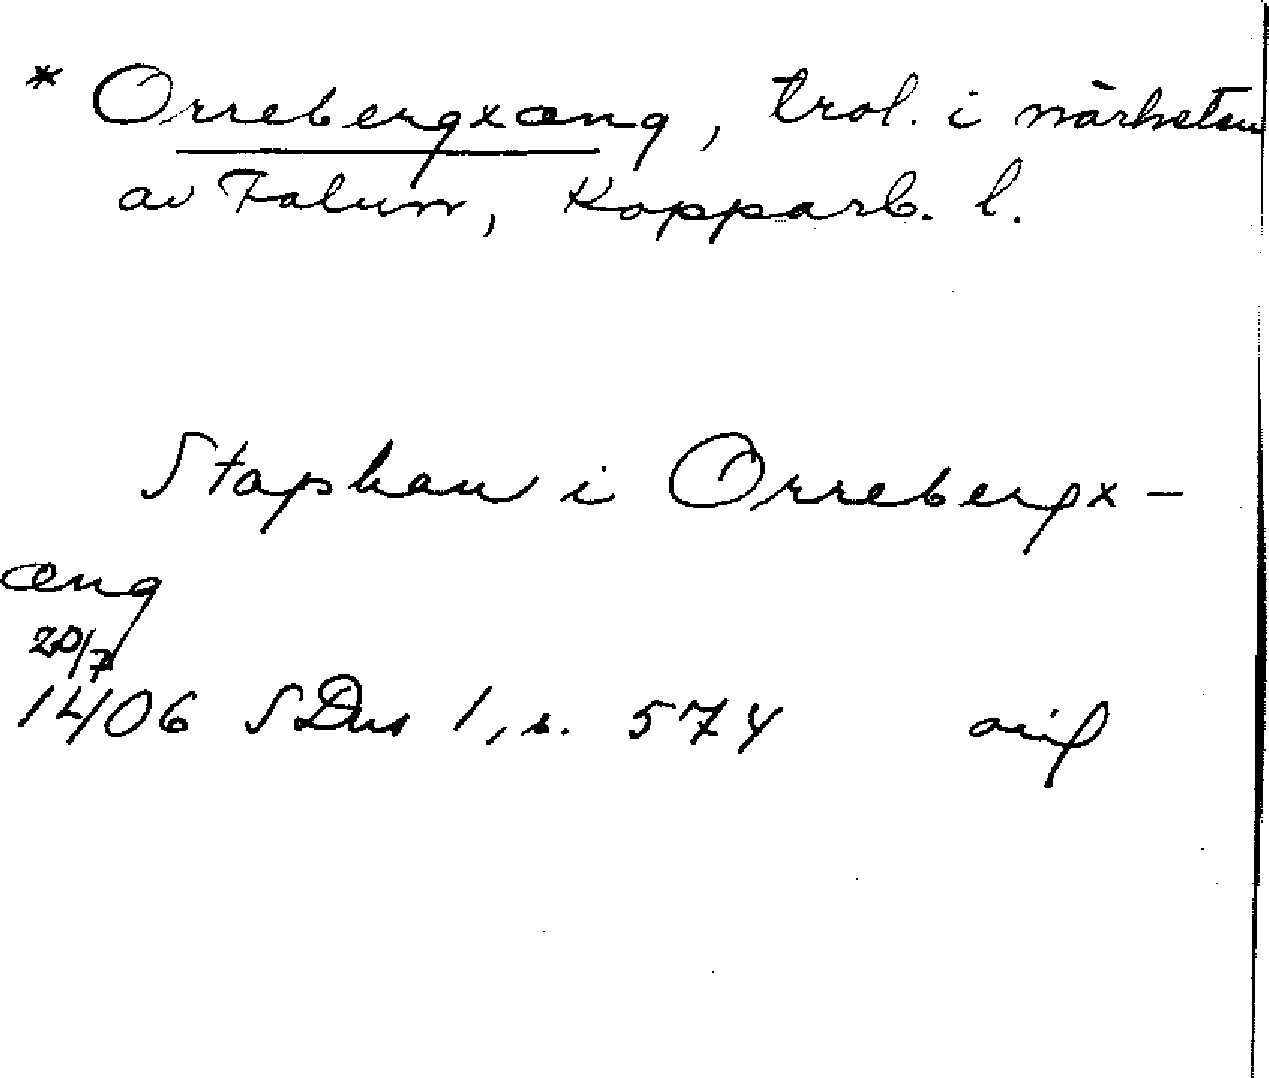 * Orrebergxæng, trol. i närheten
av Falun, Kopparb. l.
Staphan i Orrebergx-
æng
20/7
1406 SDns 1, s. 574 oif